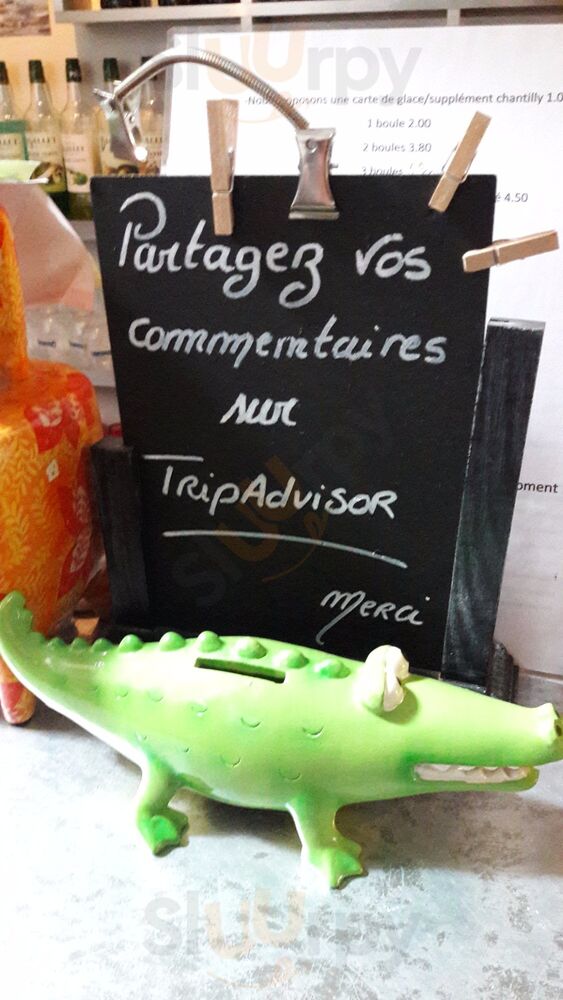 Sluurpy
Nous proposons une carte de glace/supplément chantilly 1.0
1 boule 2.00
2 boules 3.80
3 boules
é 4.50
Partagez vos
commentaires
sur
TripAdvisor
Merci
oment
Sluurpy
Sluurpy